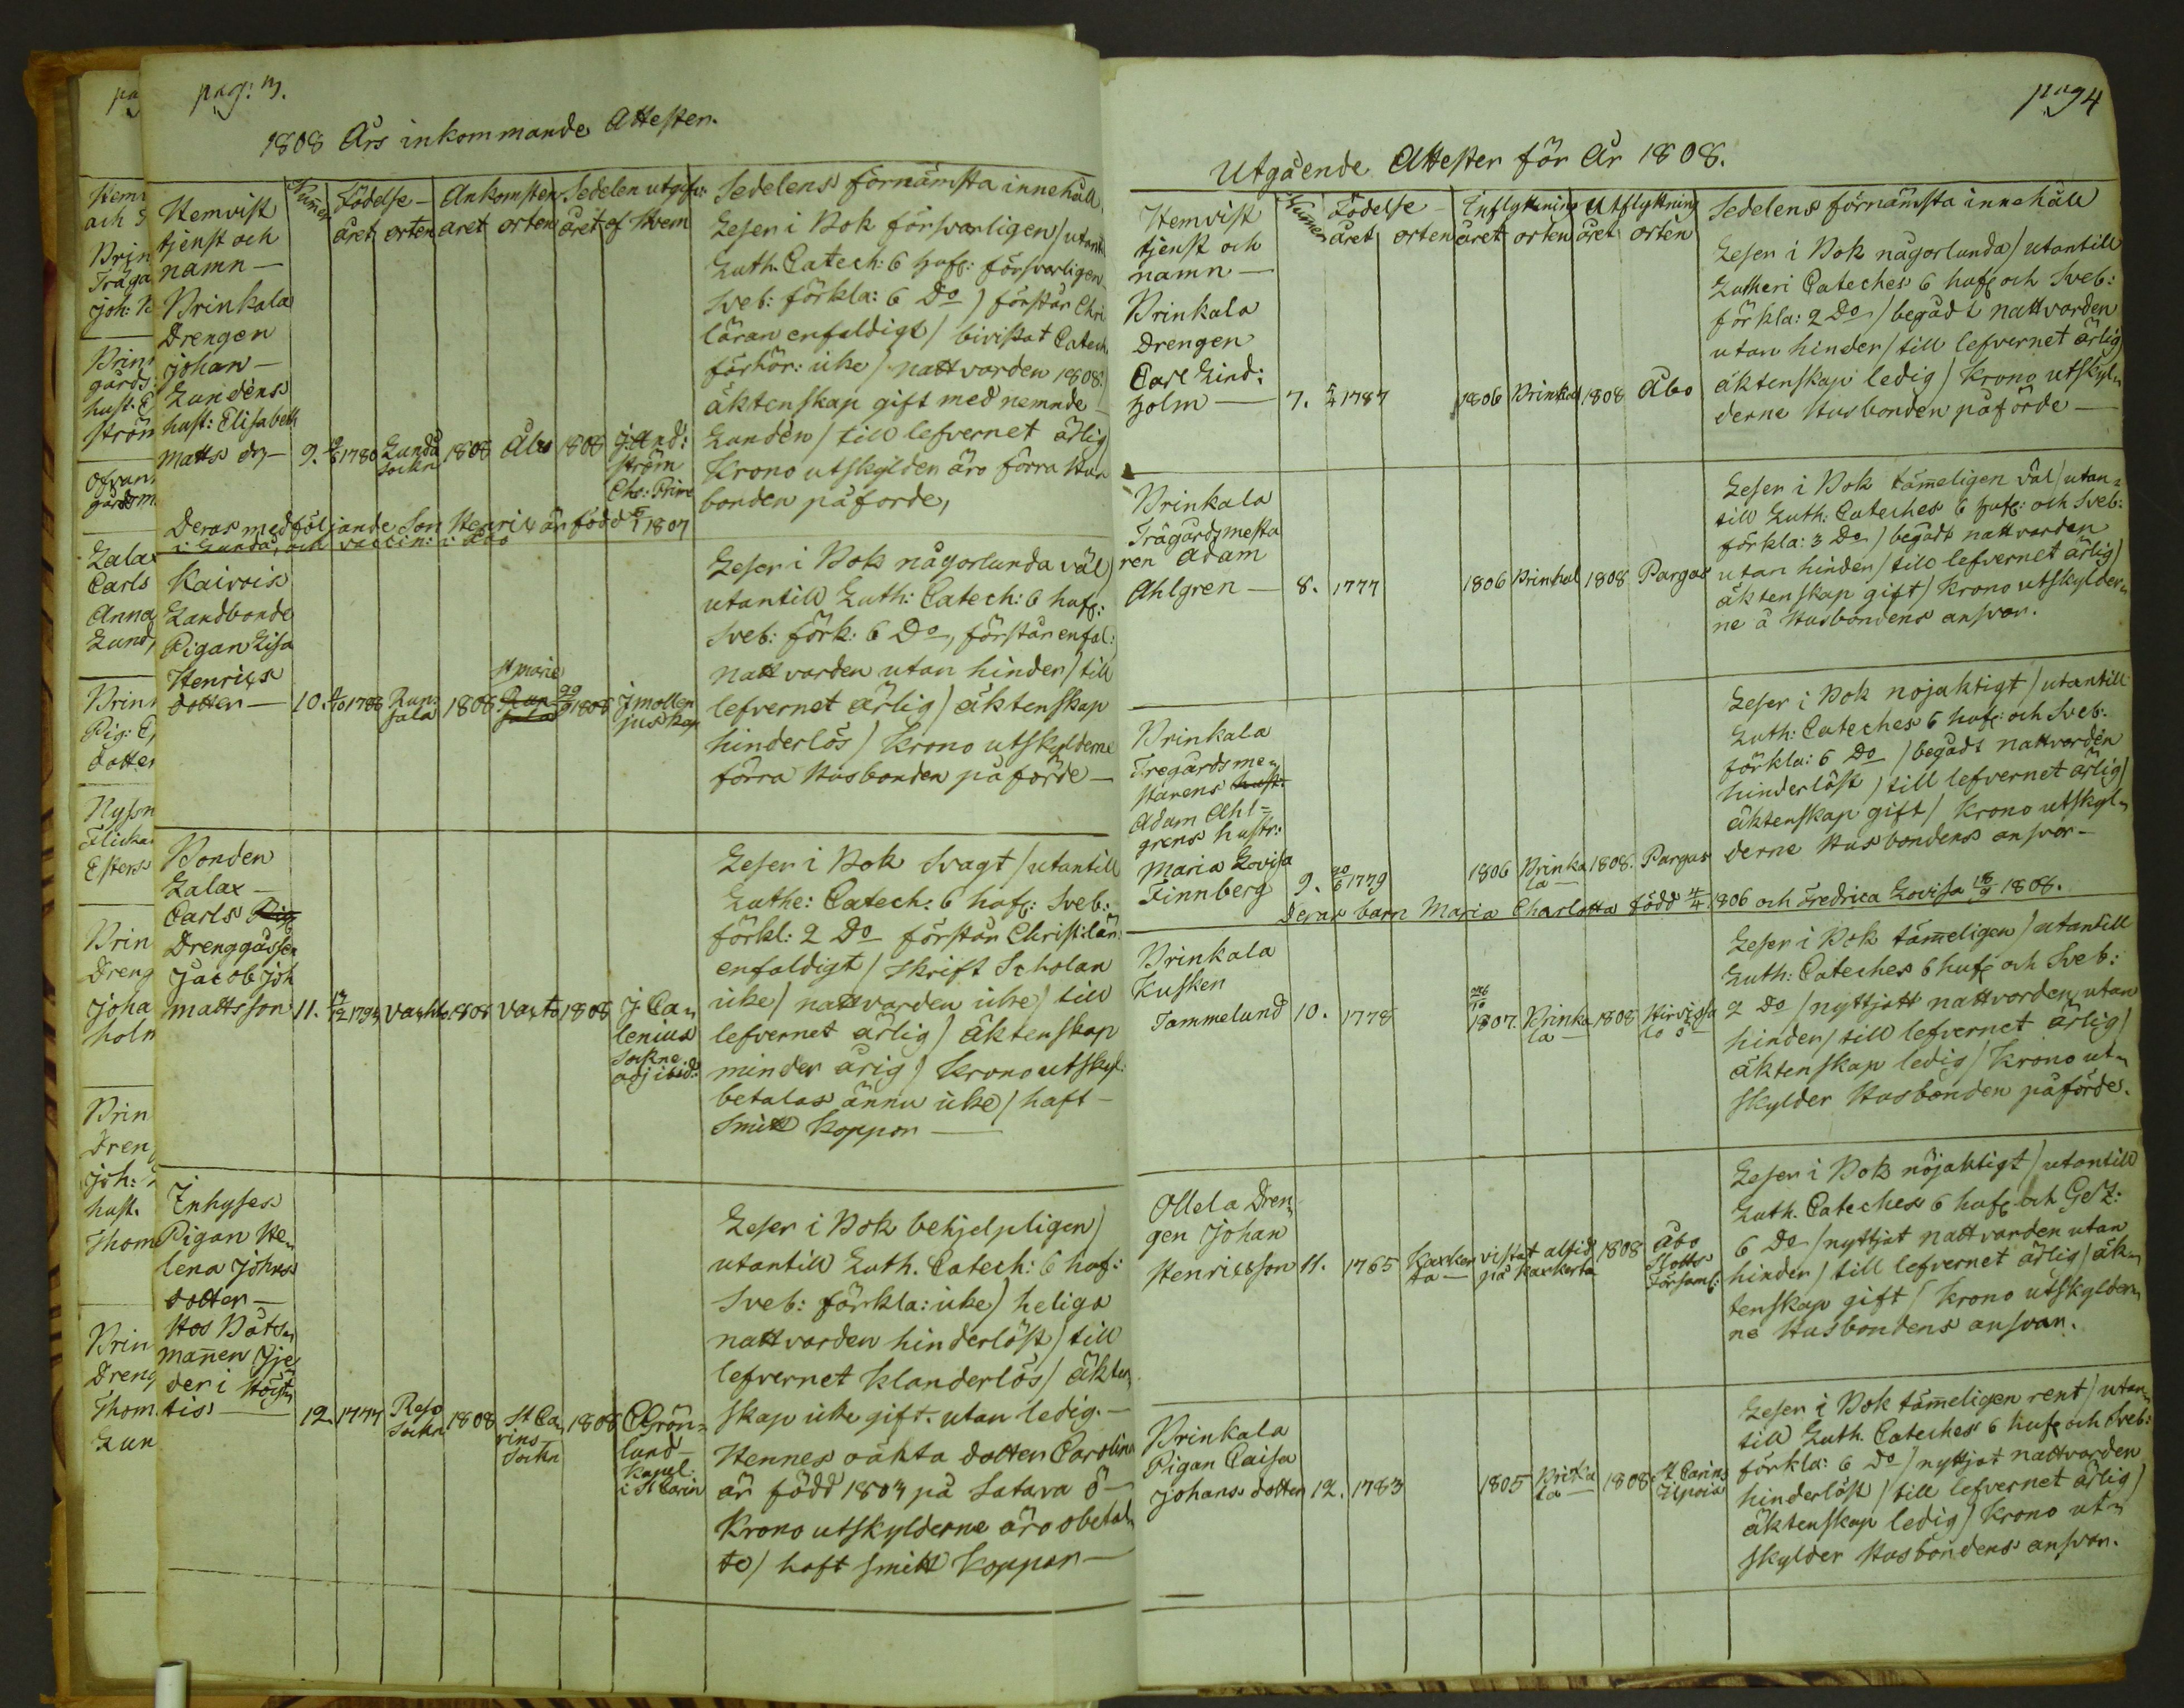 pag: 3.
1808 Års inkommande Attester.
Hemvist
tjenst och
namn —
Numer
Födelse —
året orten
Ankomsten
året orten
Sedelen utgifv:
året af Hvem
Sedelens förnämsta innehåll
Brinkala
Drengen
Johan —
Lundéns
hust: Elisabeth
Matts dr — 9. 1780 Lunda Sockn 1808 Åbo 1808 J: And:
ström
Cho: Prim
Leser i Bok försvarligen / utant
Luth. Catech: 6 huf: försvarligen
Sveb: förkla: 6 Do ) förstår Chri
läran enfaldigt / bivistat Catech.
förhör: icke / nattvarden 1808:/
äktenskap gift med nemnde —
Lundén / till lefvernet ärlig
Krono utskylden äro förra Hus
bonden påförde,
Deras medföljande Son Henric är född 1807
i Lunda, och vaccin: i Åbo
Kaivois
Landbonde
Pigan Lisa
Henrics
dotter — 10. 1788 Run:
sala 1808 St Marie
Run
sala 1808 J Mollen
jus kap
Leser i Bok någorlunda väl)
utantill Luth: Catech: 6 huf:
Sveb: förk: 6 Do, förstår enfal:
Nattvarden utan hinder / till
lefvernet ärlig) äktenskap
hinderlös) Krono utskylderne
förra Husbonden påförde —
Bonden
Lalax —
Carls Pig
Drenggåssen
Jacob Joh
Mattsson 11. 17/12 1794 Vaxto 1808 Vaxto 1808 J. Ca„
lenius
Sockne.
adj ibid:
Leser i Bok Svagt / utantill
Luthe: Catech: 6 huf: Sveb:
förkl: 2 Do förstår Christ: lär:
enfaldigt / Skrift Scholan
icke) nattvarden icke) till
lefvernet ärlig) äktenskap
minder årig) Krono utskyl:
betalas ännu icke / haft —
Smitt Koppor —
Inhyses
Pigan He„
lena Johns
dotter —
Hos Båts„
mannen Jje
der i Höys„
tis — 12. 1777 Reso
Sockn 1808 St Ca„
rins —
Sockn 1808 C Grön=
lund —
Kapel.
i St Carin
Leser i Bok behjelpligen)
utantill Luth. Catech: 6 huf:
Sveb: förkla: icke) heliga
nattvarden hinderlöst) till
lefvernet klanderlös / äkten„
skap icke gift. utan ledig. —
Hennes oäkta dotter Carolina
är född 1807 på Satava ö —
Krono utskylderne äro obetal„
te / haft smitt Koppor —
pag 4
Utgående Attester för År 1808.
Hemvist
tjenst och
namn —
Numer
Födelse —
året orten
Inflyttning
året orten
Utflyttning
året orten
Sedelens förnämsta innehåll
Brinkala
Drengen
Carl Lind:
holm — 7. 5/4 1787 1806 Brinkal 1808 Åbo
Leser i Bok någorlunda / utantill
Lutheri Cateches 6 huf och Sveb:
förkla: 2 Do / begådt nattvarden
utan hinder / till lefvernet ärlig
äktenskap ledig) Krono utskyl„
derne Husbonden påförde —
Brinkala
Trägårdsmesta
ren Adam
Ahlgren — 8. 1777 1806 Brinkal 1808 Pargas
Leser i Bok tämeligen väl / utan=
till Luth: Cateches 6 huf: och Sveb:
förkla: 3 Do) begådt nattvarden
utan hinder / till lefvernet ärlig)
äktenskap gift) Krono utskylder„
ne å Husbondens ansvar.
Brinkala
Tregårdsme„
starens hust:
Adam Ahl=
grens hustr:
Maria Lovisa
Finnberg 9. 20/6 1779 1806 Brinka
la — 1808. Pargas
Leser i Bok nöjaktigt / utantill
Luth: Cateches 6 huf: och Sveb:
förkla: 6 Do / begådt nattvarden
hinderlöst) till lefvernet ärlig)
äktenskap gift) Krono utskyl„
derne Husbondens ansvar —
Deras barn Maria Charlotta född 4/4 1806 och Fredrica Lovisa 18/9 1808.
Brinkala
Kusken
Tammelund 10. 1778 1807. Brinka
la — 1808 Hirvissa
lo ö —
Leser i Bok tämeligen / utantill
Luth: Cateches 6 huf och Sveb:
2 Do / nyttjatt nattvarden utan
hinder / till lefvernet ärlig)
äktenskap ledig) Krono ut„
skylder Husbonden påförde.
Ollela Dren„
gen Johan
Henricsson 11. 1765 Kaxker
ta — vistat altid
på Kaxkerta 1808 Åbo
Slotts
Församl:
Leser i Bok nöjaktigt / utantill
Luth. Cateches 6 huf och Gez:
6 Do / nyttjat nattvarden utan
hinder / till lefvernet ärlig / äk„
tenskap gift / Krono utskylder„
ne Husbondens ansvar.
Brinkala
Pigan Caisa
Johans dotter 12. 1783 1805 Brinka
la — 1808 St Carins
Ilpois
Leser i Bok tämeligen rent / utan„
till Luth. Cateches 6 huf och Sveb:
förkla: 6 Do / nyttjat nattvarden
hinderlöst) till lefvernet ärlig)
äktenskap ledig) Krono ut„
skylder Husbondens ansvar.